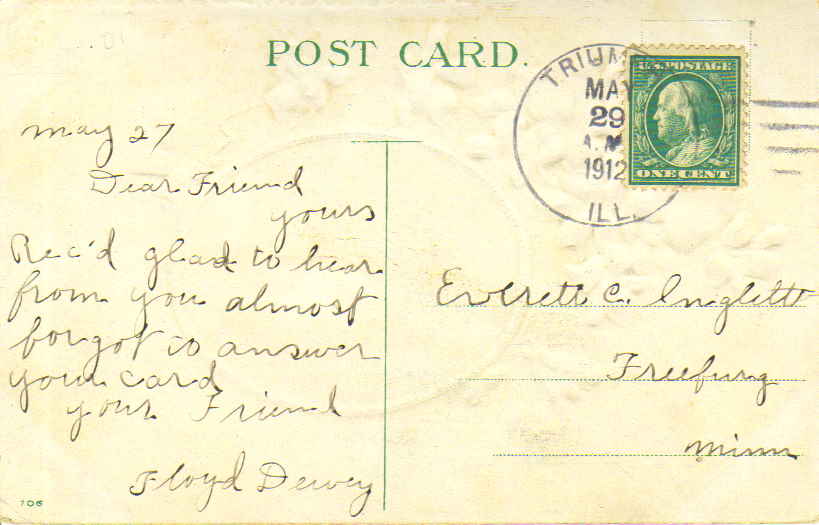 POST CARD.
TRIUM
MAY
29
A.M.
1912
ILL.
U.S. POSTAGE
ONE CENT
May 27
Dear Friend
yours
Rec'd glad to hear
from you almost
forgot to answer
your card
your Friend
Floyd Dewey
Everett C. Inglett
Freeburg
Minn
106